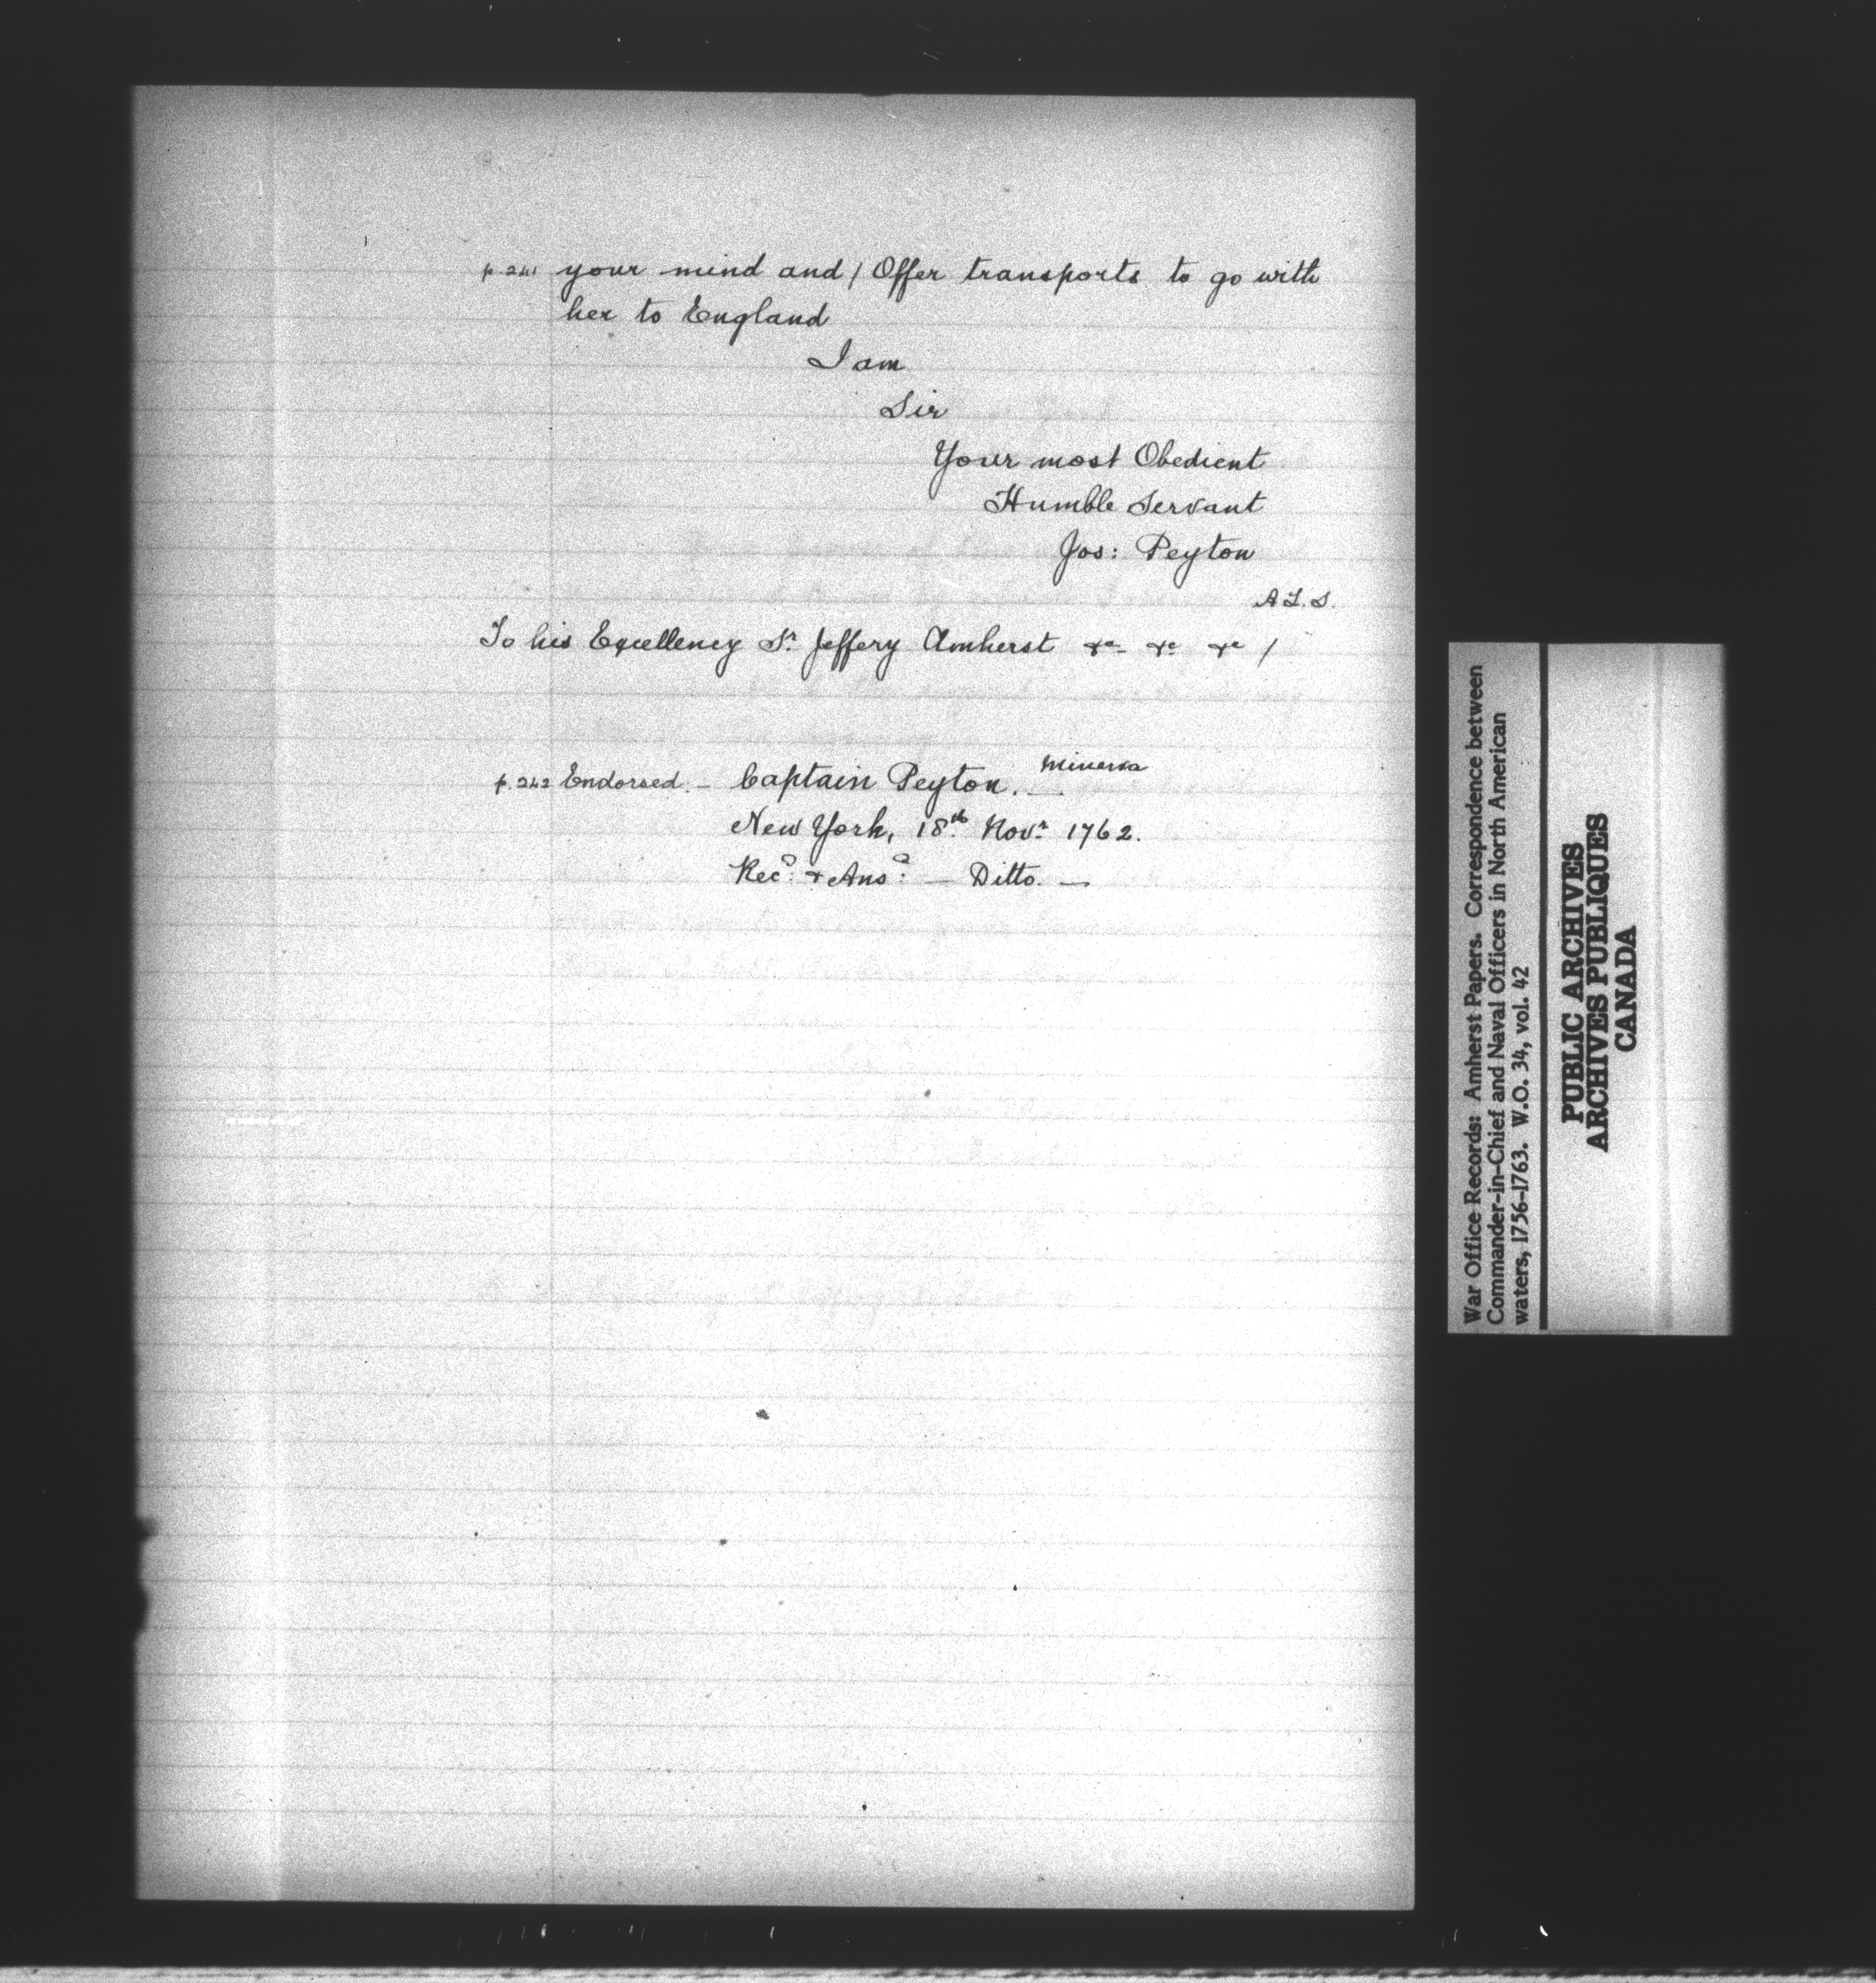 p. 241 your mind and / Offer transports to go with
her to England
I am
Sir
Your most Obedient
Humble Servant
Jos: Peyton
A L. S.
To his Excellency Sr. Jeffery Amherst &c &c &c /
p. 242 Endorsed. – Captain Peyton. — Minerva
New York, 18th. Novr. 1762.
Recd: & Ansd: — Ditto. —
War Office Records: Amherst Papers. Correspondence between
Commander-in-Chief and Naval Officers in North American
waters, 1756-1763. W.O. 34, vol. 42
PUBLIC ARCHIVES
ARCHIVES PUBLIQUES
CANADA